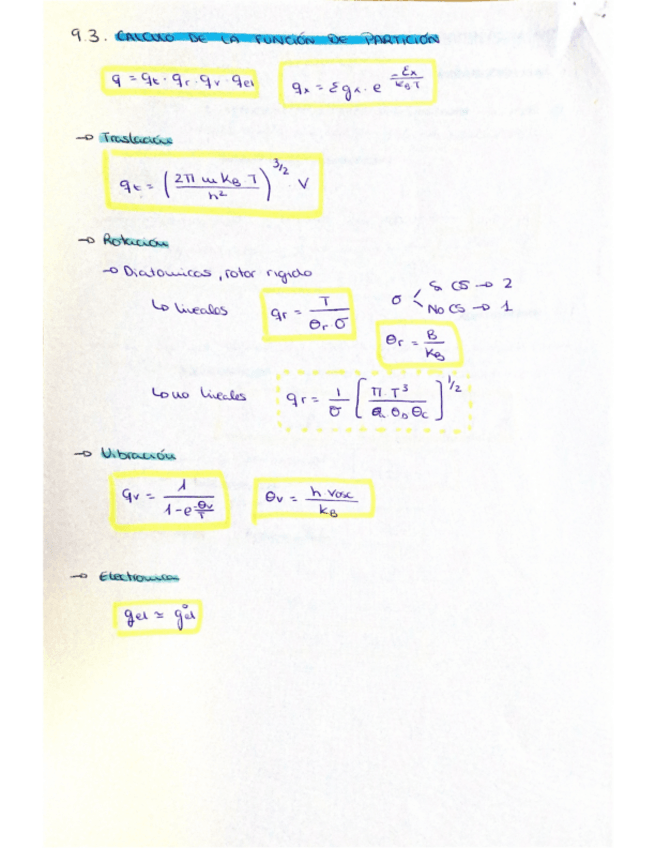 9.3. CALCULO DE LA FUNCIÓN DE PARTICIÓN
q = qt · qr · qv · qel
qx = Σ gx · e^(-εx / kBT)
→ Traslación
qt = (2π m kB T / h²)^(3/2) · V
→ Rotación
→ Diatomicas, rotor rigido
↳ lineales
qr = T / (θr · σ)
σ
Si CS → 2
No CS → 1
θr = B / kB
↳ no lineales
qr = 1/σ [π · T³ / (θa θb θc)]^(1/2)
→ Vibración
qv = 1 / (1 - e^(-θv/T))
θv = h · νosc / kB
→ Electronica
gel ≃ g°el